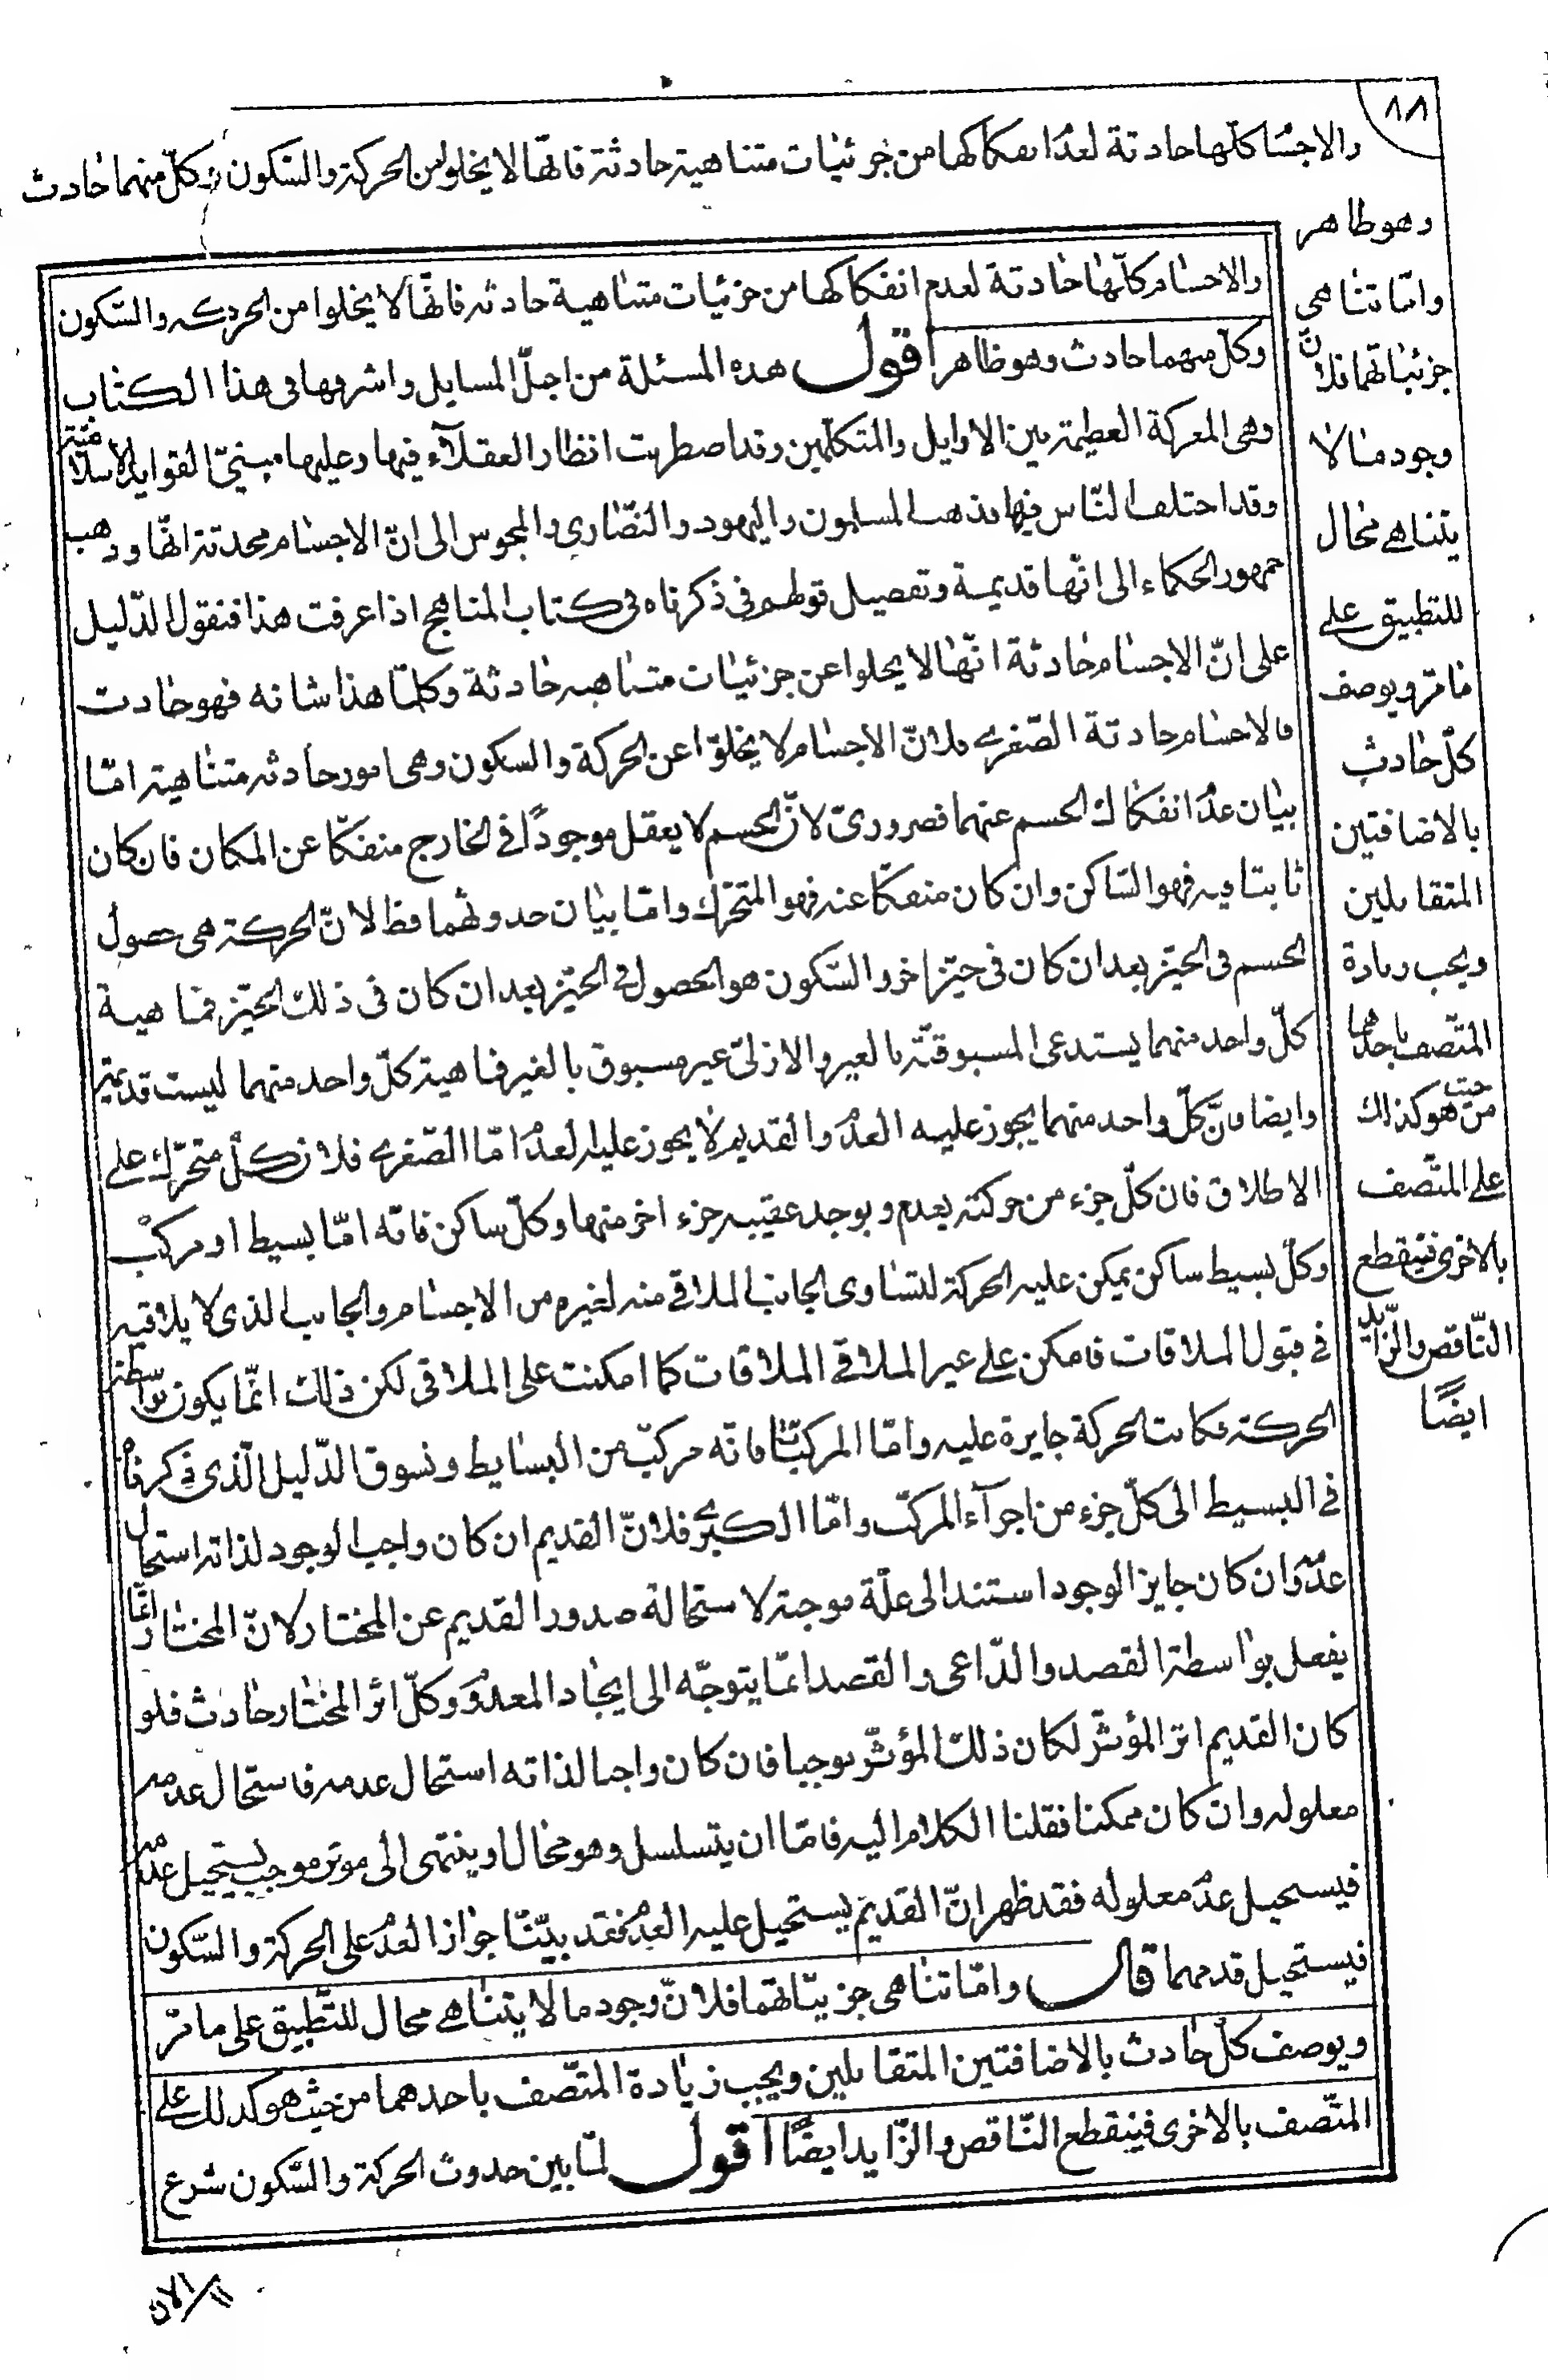 ٨٨
والاجسا كلها حادثة لعدم انفكاكها من جزئيات متناهية حادثة فانها لا يخلو من الحركة والسكون وكل منهما حادث
وهو ظاهر
واما تناهى
جزئياتهما فلان
وجود ما لا
يتناهى محال
للتطبيق على
ما مر ويوصف
كل حادث
بالاضافتين
المتقابلين
ويجب زيادة
المتصف باحدهما
من حيث هو كذلك
على المتصف
بالاخرى فينقطع
الناقص والزايد
ايضا
والاجسام كلها حادثة لعدم انفكاكها من جزئيات متناهية حادثه فانها لا يخلوا من الحركه والسكون
وكل منهما حادث وهو ظاهر اقول هذه المسئلة من اجل المسايل واشرفها فى هذا الكتاب
وهى المعركة العظيمة بين الاوايل والمتكلمين وقد اضطربت انظار العقلاء فيها وعليها مبنى القواعد الاسلامية
وقد اختلف الناس فيها فذهب المسلمون واليهود والنصارى والمجوس الى ان الاجسام محدثة انها وذهب
جمهور الحكماء الى انها قديمة وتفصيل قولهم فى ذكرناه فى كتاب المناهج اذا عرفت هذا فنقول الدليل
على ان الاجسام حادثة انها لا يخلوا عن جزئيات متناهيه حادثة وكلما هذا شانه فهو حادث
فالاجسام حادثة الصغرى فلان الاجسام لا يخلوا عن الحركة والسكون وهى امور حادثه متناهية اما
بيان عدم انفكاك الجسم عنهما فضرورى لان الجسم لا يعقل موجودا فى الخارج منفكا عن المكان فان كان
ثابتا فيه فهو الساكن وان كان منفكا عنه فهو المتحرك واما بيان حدوثهما فظ لان الحركة هى حصول
الجسم فى الحيز بعد ان كان فى حيز اخر والسكون هو الحصول فى الحيز بعد ان كان فى ذلك الحيز فماهية
كل واحد منهما يستدعى المسبوقية بالغير والازلى غير مسبوق بالغير فماهية كل واحد منهما ليست قديمة
وايضا فان كل واحد منهما يجوز عليه العدم والقديم لا يجوز عليه العدم اما الصغرى فلان كل متحرك على
الاطلاق فان كل جزء من حركته يعدم ويوجد عقيبه جزء اخر منها وكل ساكن فانه اما بسيط او مركب
وكل بسيط ساكن يمكن عليه الحركة لتساوى الجانب الملاقى منه لغيره من الاجسام والجانب الذى لا يلاقيه
فى قبول الملاقات فامكن على غير الملاقى الملاقات كما امكنت على الملاقى لكن ذلك انما يكون بواسطة
الحركة فكانت الحركة جايزة عليه واما المركبات فانه مركب من البسايط ونسوق الدليل الذى ذكرناه
فى البسيط الى كل جزء من اجزاء المركب واما الكبرى فلان القديم ان كان واجب الوجود لذاته استحال
عدمه وان كان جايز الوجود استند الى علة موجبة لاستحالة صدور القديم عن المختار لان المختار انما
يفعل بواسطة القصد والداعى والقصد انما يتوجه الى ايجاد المعدوم وكل اثر المختار حادث فلو
كان القديم اثر المؤثر لكان ذلك المؤثر موجبا فان كان واجبا لذاته استحال عدمه فاستحال عدمه
معلوله وان كان ممكنا فنقلنا الكلام اليه فاما ان يتسلسل وهو محال او ينتهى الى موثر موجب يستحيل عدمه
فيستحيل عدم معلوله فقد ظهر ان القديم يستحيل عليه العدم فقد بينا جواز العدم على الحركة والسكون
فيستحيل قدمهما قال واما تناهى جزيياتهما فلان وجود ما لا يتناهى محال للتطبيق على ما مر
ويوصف كل حادث بالاضافتين المتقابلين ويجب زيادة المتصف باحدهما من حيث هو كذلك على
المتصف بالاخرى فينقطع الناقص والزايد ايضا اقول لما بين حدوث الحركة والسكون شرع